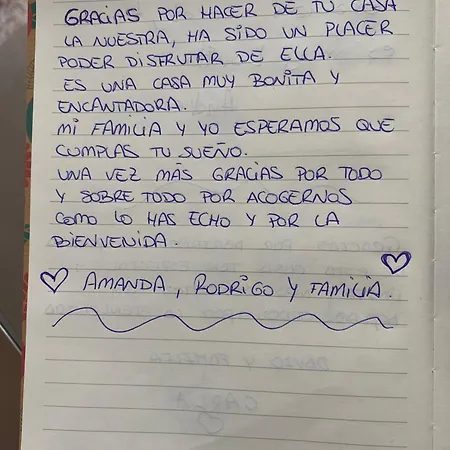 GRACIAS POR HACER DE TU CASA
LA NUESTRA, HA SIDO UN PLACER
PODER DISFRUTAR DE ELLA.
ES UNA CASA MUY BONITA Y
ENCANTADORA.
MI FAMILIA Y YO ESPERAMOS QUE
CUMPLAS TU SUEÑO.
UNA VEZ MÁS GRACIAS POR TODO
Y SOBRE TODO POR ACOGERNOS
COMO LO HAS ECHO Y POR LA
BIENVENIDA.
AMANDA, RODRIGO Y FAMILIA.